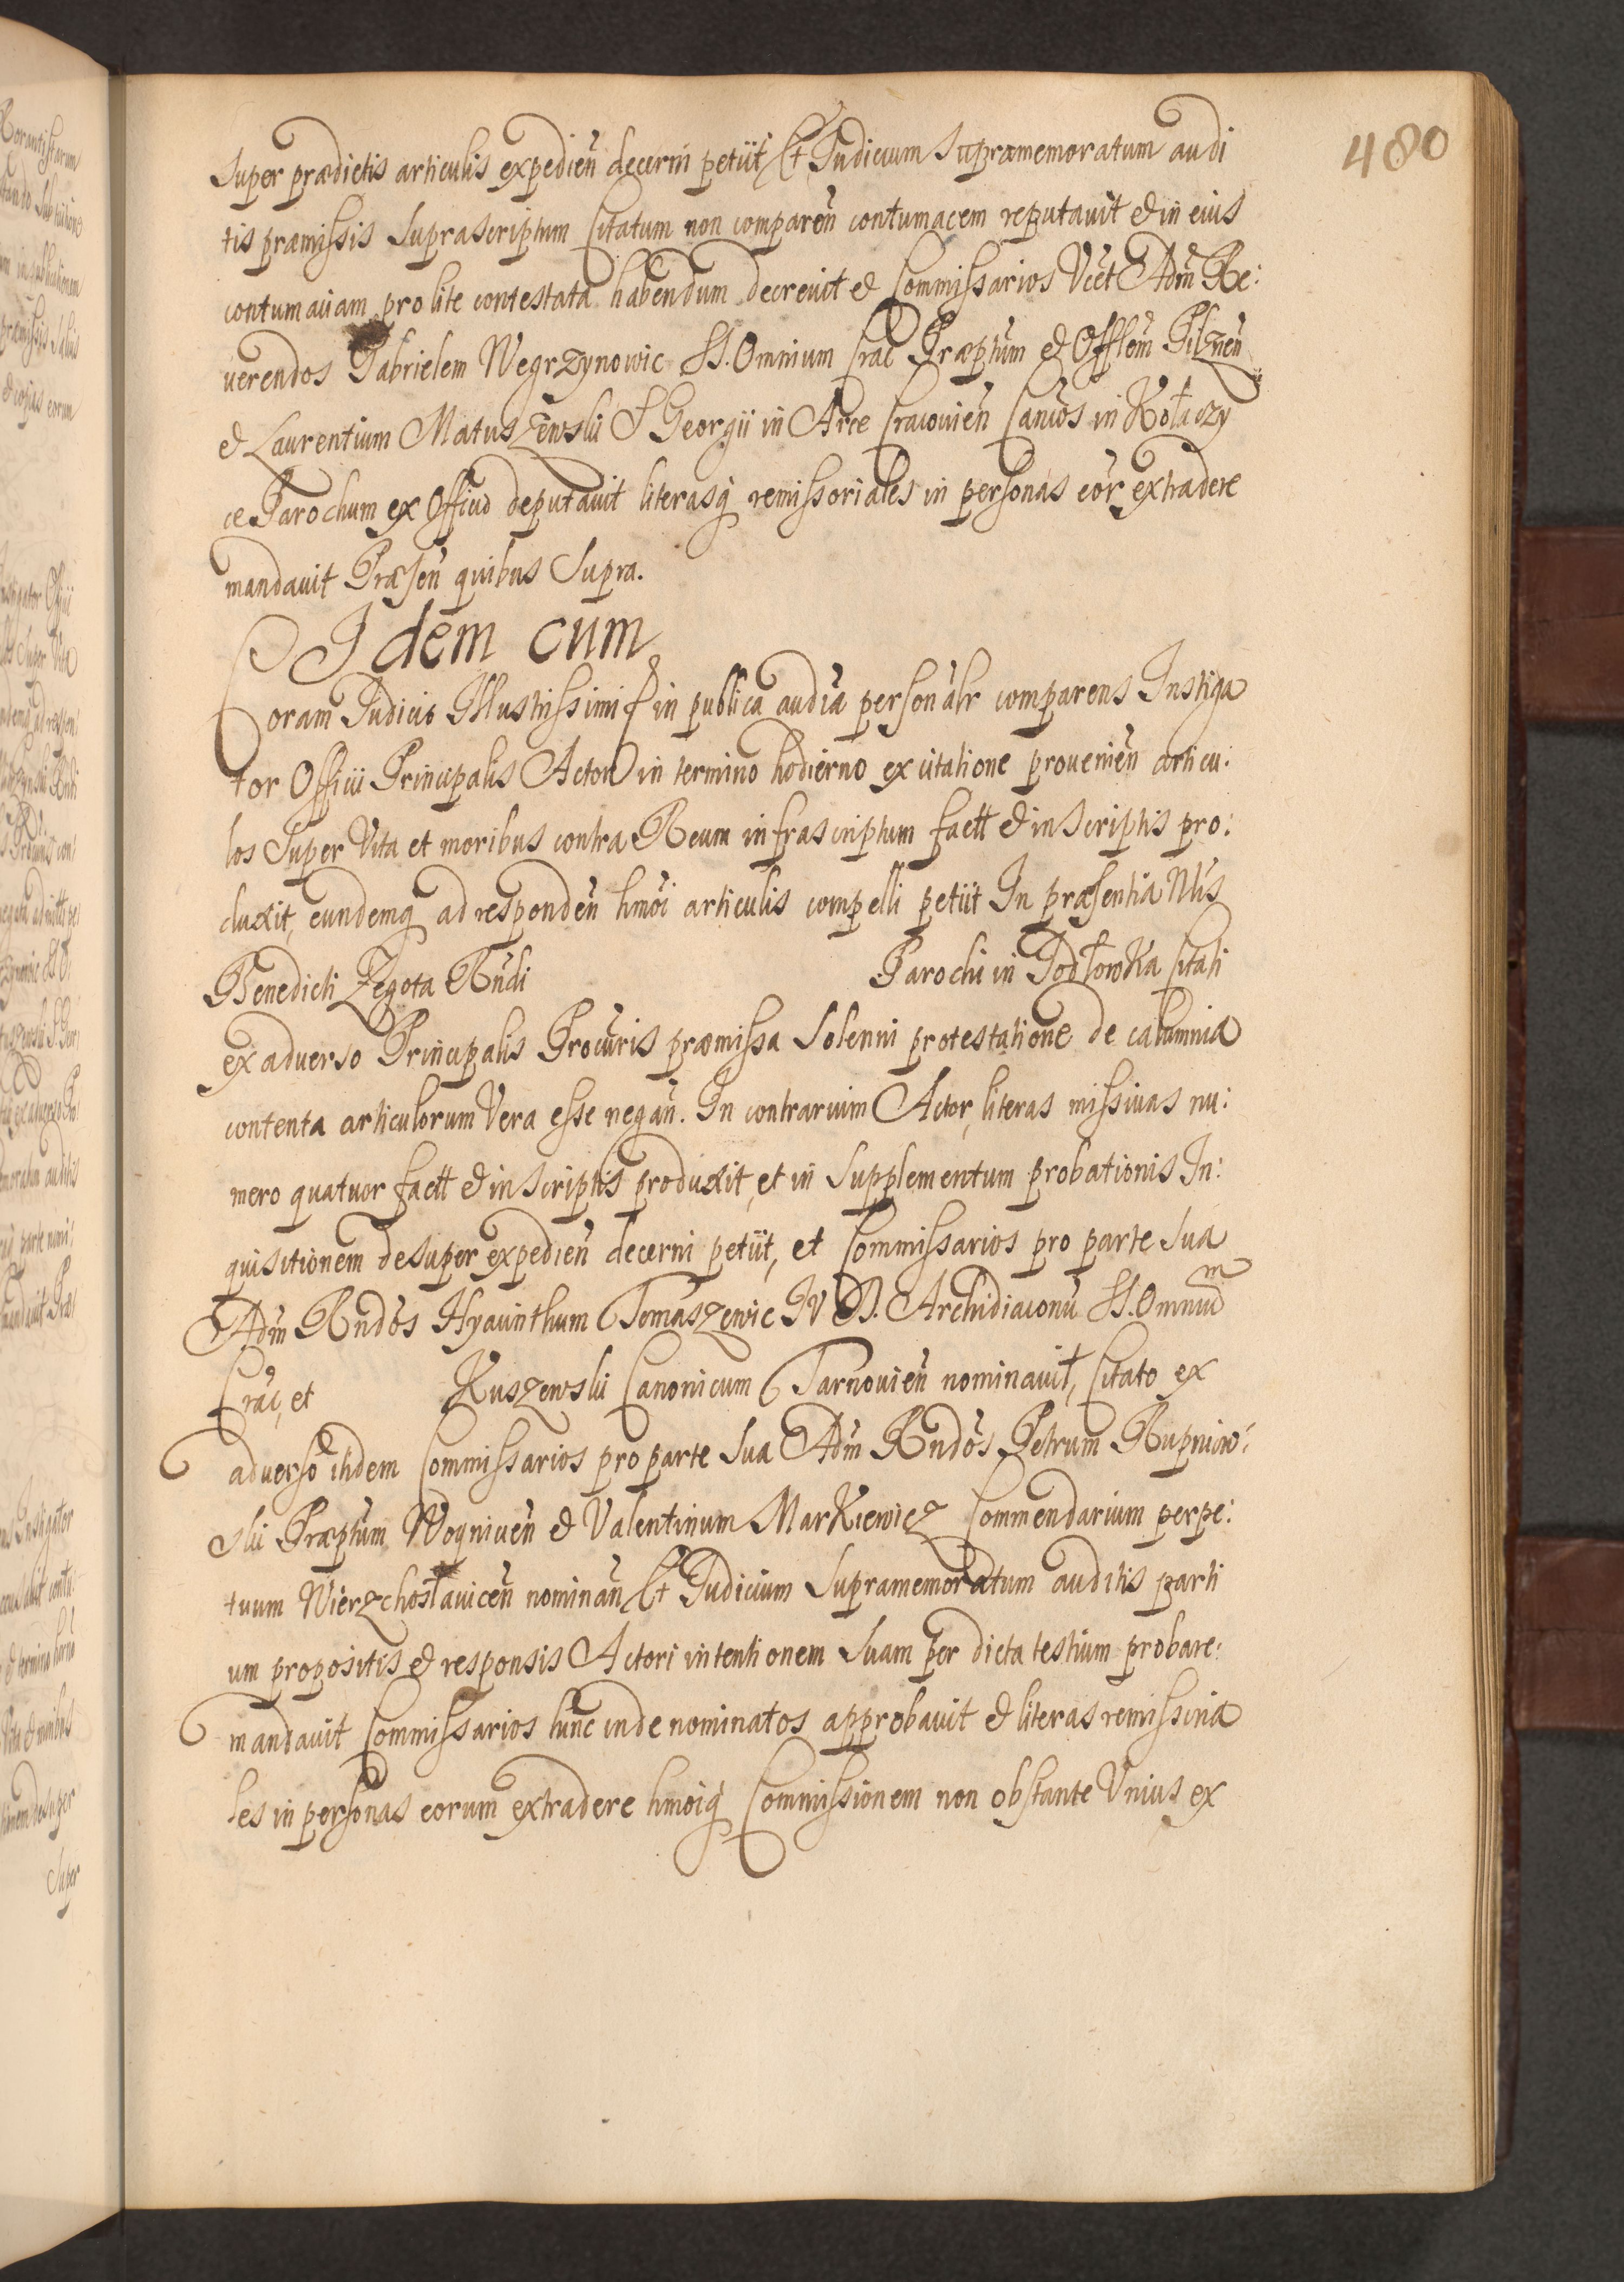 480
super prædictis articulis expedień decerni petiit Et Iudicium supramemoratum audi
tis præmissis suprascriptum Citatum non comparéń contumacem reputavit et in eius
contumaciam pro lite contestata habendum decrevit et Commissarios Vćet Adm̃ Re:
verendos Gabrielem Wegrzynowic SS. Omnium Crać Præptum et Offlem Pilzneń
et Laurentium Matuszewski S Georgii in Arce Cracovień Canćos in Kołaczy
ce Parochum ex Officio deputavit literasq́ remissoriales in personas eor̃ extradere
mandavit Præseń quibus supra.
Idem cum
Coram Iudicio Illustrissimi in publica audĩa personalr̃ comparens Instiga
tor Officii Principalis Actor in termino hodierno ex citatione provenień articu:
los super Vita et moribus contra Reum infrascriptum factt et in scriptis pro:
duxit, eundemq́ ad respondeń hmõi articulis compelli petiit In præsentia Nlis
Benedicti Zegota Rńdi Parochi in Jodłowka Citati
ex adverso Principalis Procuris præmissa solenni protestatione de calumnia
contenta articulorum Vera esse negań. In contrarium Actor, literas missivas nu:
mero quatuor factt et in scriptis produxit, et in supplementum probationis In:
quisitionem desuper expedień decerni petiit, et Commissarios pro parte sua
Adm̃ Rńdos Hyacinthum Tomaszewic IV D. Archidiaconũ SS. Omniũm
Crać, et Kuszewski Canonicum Tarnovień nominavit, Citato ex
adverso itidem Commissarios pro parte sua Adm̃ Rńdos Petrum Rupniow:
ski Præptum Woynicéń et Valentinum Markiewicz Commendarium perpe:
tuum Wierzchosłavicéń nominań Et Iudicium supramemoratum auditis parti
um propositis et responsis Actori intentionem suam per dicta testium probare
mandavit Commissarios hinc inde nominatos approbavit et literas remissoria
les in personas eorum extradere hmoiq́ Commissionem non obstante Unius ex